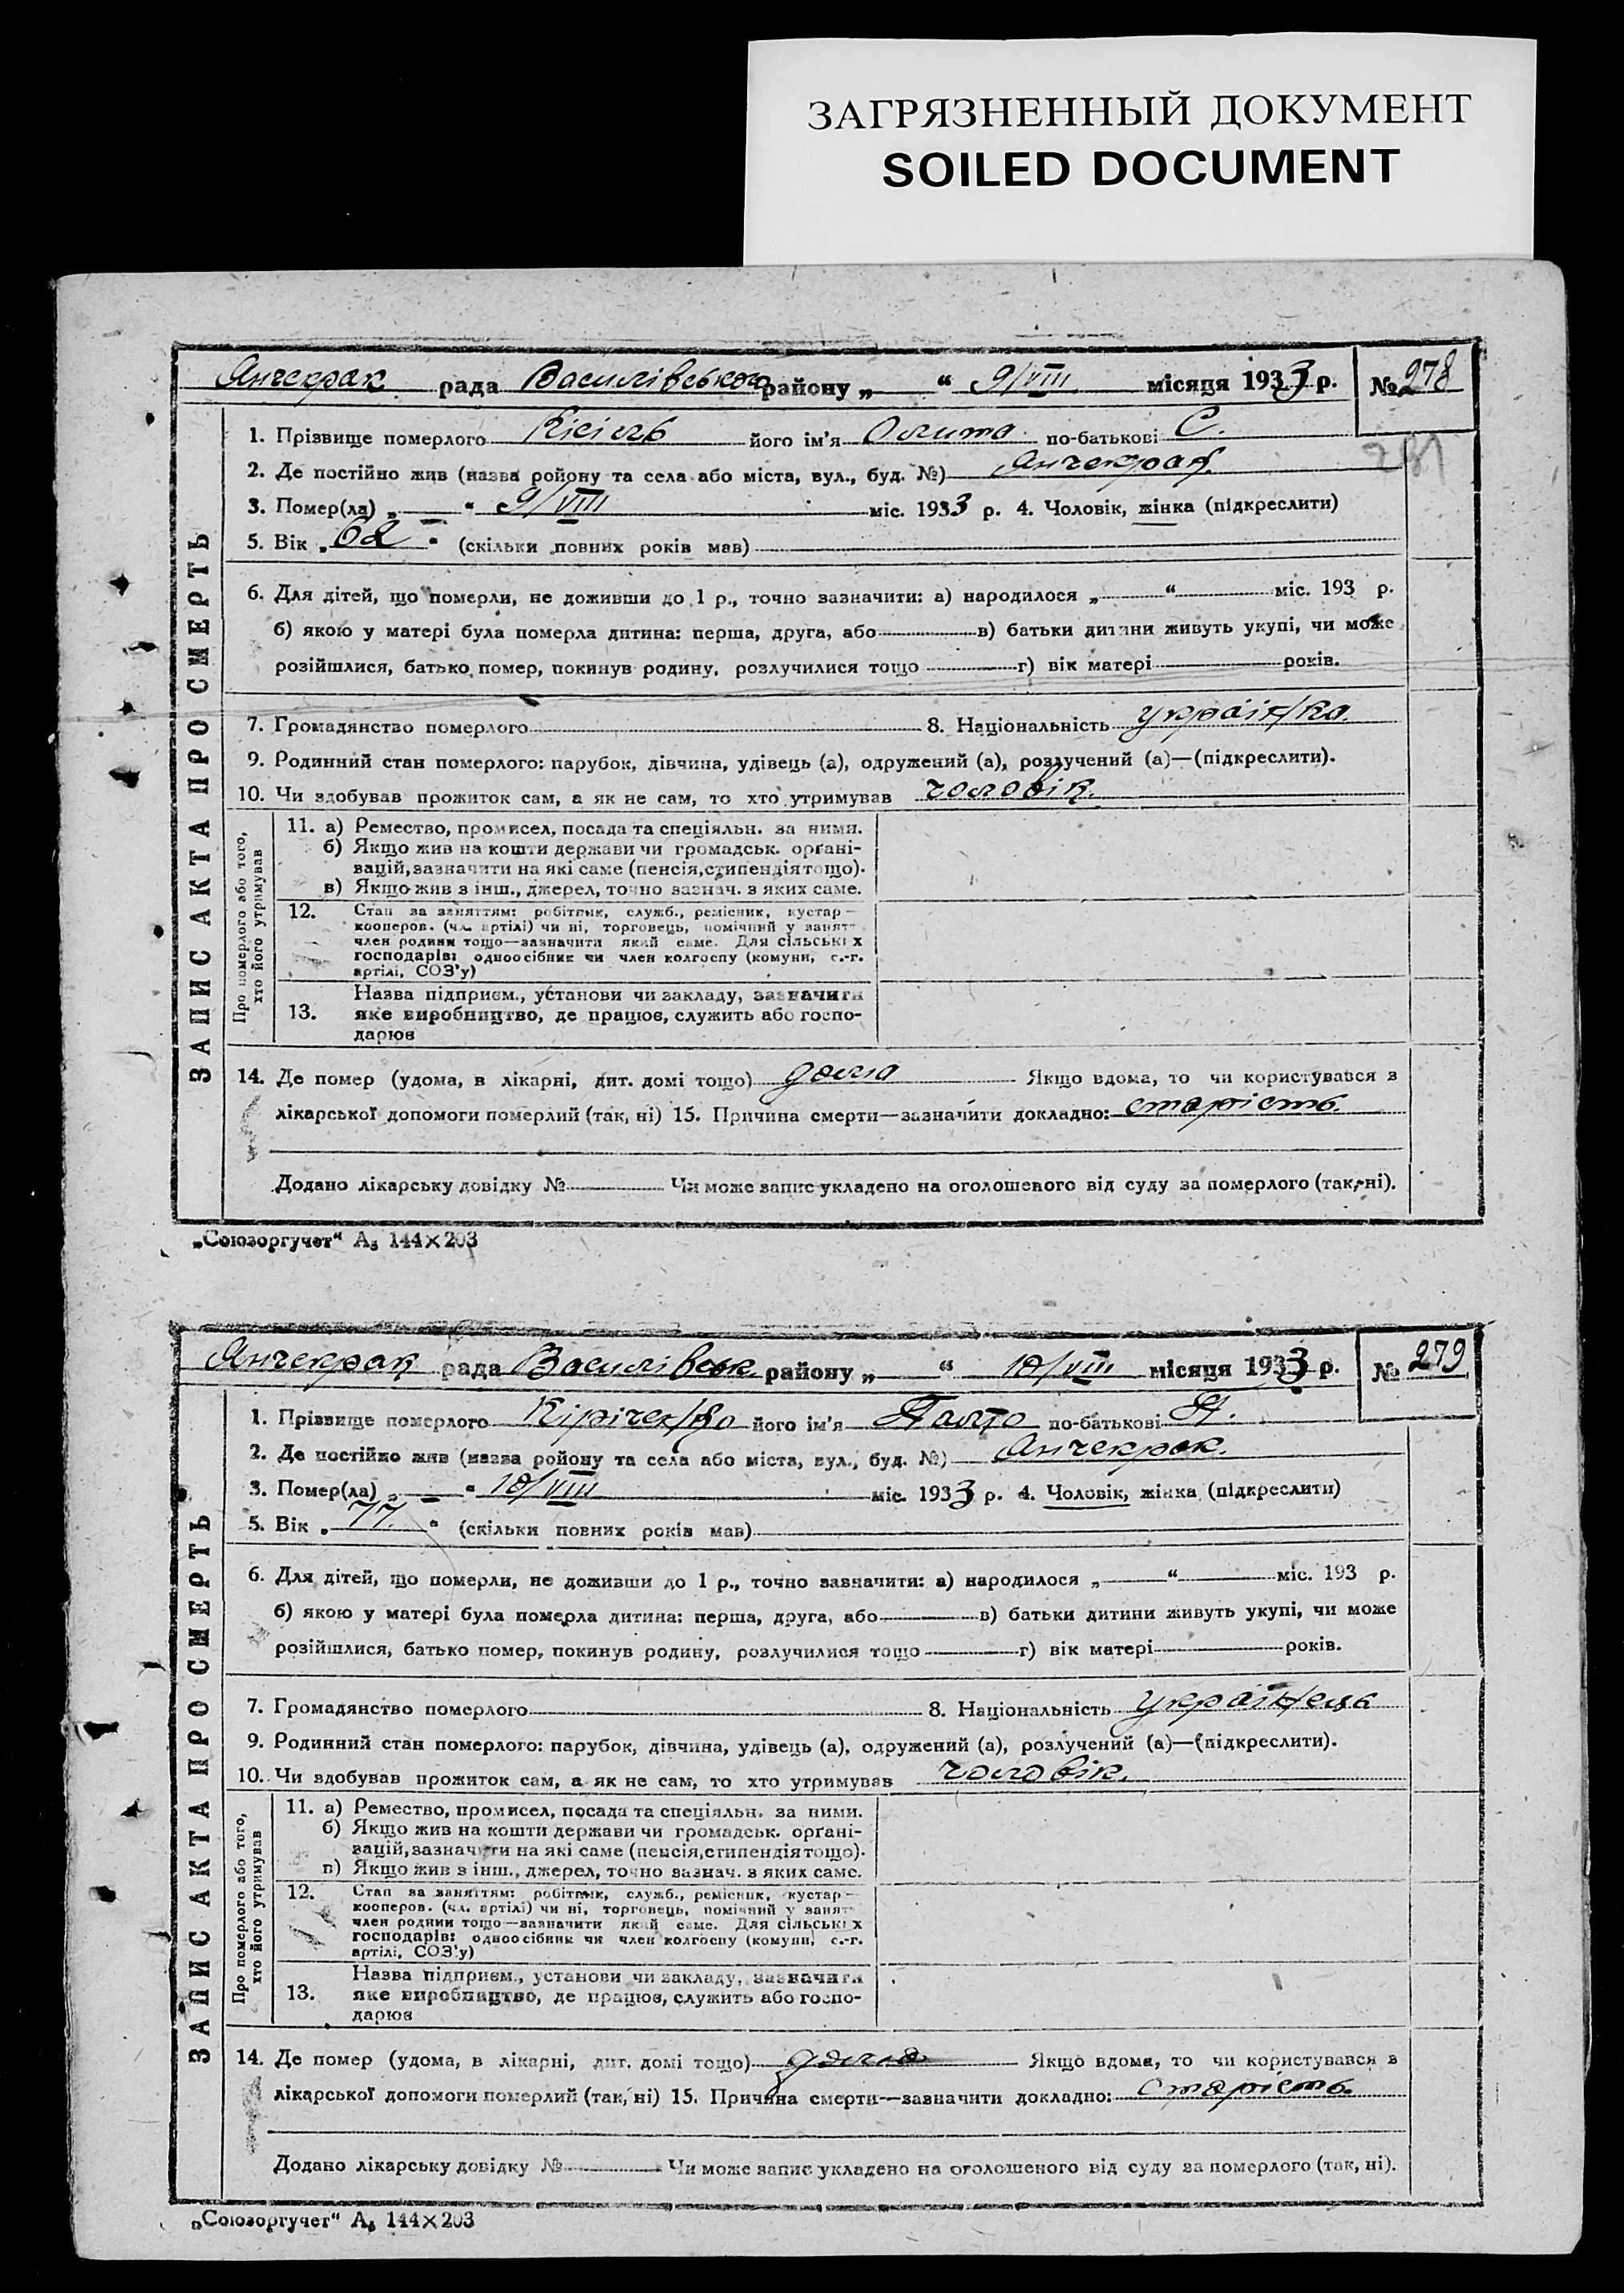 ЗАГРЯЗНЕННЫЙ ДОКУМЕНТ
SOILED DOCUMENT
Янчекрак рада Василівського району „ “ 9/VIII місяця 1933 р. № 278
281
ЗАПИС АКТА ПРО СМЕРТЬ
1. Прізвище померлого Кісіль його ім’я по-батькові С.
2. Де постійно жив (назва ройону та села або міста, вул., буд. №) Янчекрак
3. Помер(ла) „ “ 9/VIII міс. 1933 р. 4. Чоловік, жінка (підкреслити)
5. Вік „62“ (скільки повних років мав)
6. Для дітей, що померли, не доживши до 1 р., точно зазначити: а) народилося „ “ міс. 193 р.
б) якою у матері була померла дитина: перша, друга, або в) батьки дитини живуть укупі, чи може
розійшлися, батько помер, покинув родину, розлучилися тощо г) вік матері років.
7. Громадянство померлого 8. Національність українка.
9. Родинний стан померлого: парубок, дівчина, удівець (а), одружений (а), розлучений (а)—(підкреслити).
10. Чи здобував прожиток сам, а як не сам, то хто утримував чоловік.
Про померлого або того, хто його утримував
11. а) Ремество, промисел, посада та спеціяльн. за ними.
б) Якщо жив на кошти держави чи громадськ. орґані-
зацій, зазначити на які саме (пенсія, стипендія тощо).
в) Якщо жив з інш., джерел, точно зазнач. з яких саме.
12. Стан за заняттям: робітник, служб., ремісник, кустар—
кооперов. (чл. артілі) чи ні, торговець, помічний у занят-
член родини тощо—зазначити який саме. Для сільських
господарів: одноосібник чи член колгоспу (комуни, с.-г.
артілі, СОЗ’у)
Назва підприєм., установи чи закладу, зазначити
13. яке виробництво, де працює, служить або госпо-
дарює
14. Де помер (удома, в лікарні, дит. домі тощо) дома Якщо вдома, то чи користувався з
лікарської допомоги померлий (так, ні) 15. Причина смерти—зазначити докладно: старість.
Додано лікарську довідку № Чи може запис укладено на оголошеного від суду за померлого (так, ні).
„Союзоргучет“ А₅ 144×203
Янчекрак рада Василівськ району „ “ 10/VIII місяця 1933 р. № 279
ЗАПИС АКТА ПРО СМЕРТЬ
1. Прізвище померлого його ім’я по-батькові
2. Де постійно жив (назва ройону та села або міста, вул., буд. №) Янчекрак.
3. Помер(ла) „ “ 10/VIII міс. 1933 р. 4. Чоловік, жінка (підкреслити)
5. Вік „77.“ (скільки повних років мав)
6. Для дітей, що померли, не доживши до 1 р., точно зазначити: а) народилося „ “ міс. 193 р.
б) якою у матері була померла дитина: перша, друга, або в) батьки дитини живуть укупі, чи може
розійшлися, батько помер, покинув родину, розлучилися тощо г) вік матері років.
7. Громадянство померлого 8. Національність українець
9. Родинний стан померлого: парубок, дівчина, удівець (а), одружений (а), розлучений (а)—(підкреслити).
10. Чи здобував прожиток сам, а як не сам, то хто утримував чоловік.
Про померлого або того, хто його утримував
11. а) Ремество, промисел, посада та спеціяльн. за ними.
б) Якщо жив на кошти держави чи громадськ. орґані-
зацій, зазначити на які саме (пенсія, стипендія тощо).
в) Якщо жив з інш., джерел, точно зазнач. з яких саме.
12. Стан за заняттям: робітник, служб., ремісник, кустар—
кооперов. (чл. артілі) чи ні, торговець, помічний у занят-
член родини тощо—зазначити який саме. Для сільських
господарів: одноосібник чи член колгоспу (комуни, с.-г.
артілі, СОЗ’у)
Назва підприєм., установи чи закладу, зазначити
13. яке виробництво, де працює, служить або госпо-
дарює
14. Де помер (удома, в лікарні, дит. домі тощо) дома Якщо вдома, то чи користувався з
лікарської допомоги померлий (так, ні) 15. Причина смерти—зазначити докладно: старість.
Додано лікарську довідку № Чи може запис укладено на оголошеного від суду за померлого (так, ні).
„Союзоргучет“ А₅ 144×203